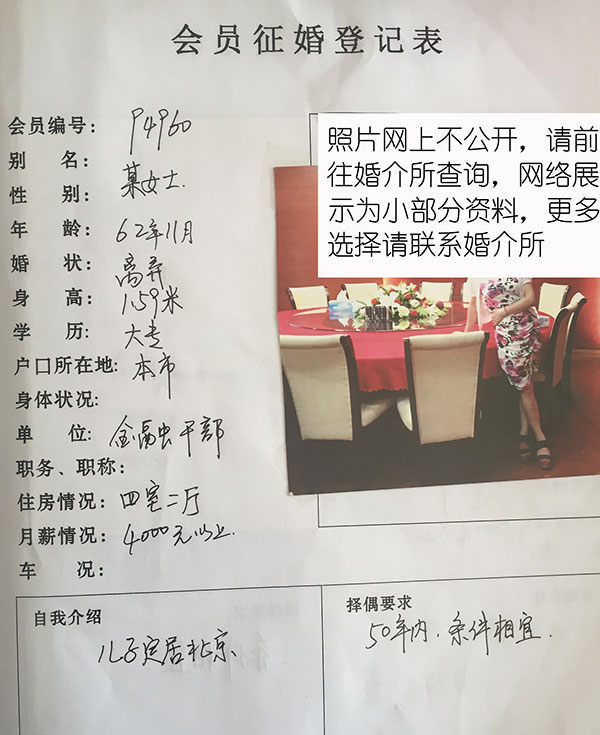 会员征婚登记表
会员编号：94960
别 名：某女士.
性 别：
年 龄：62年11月
婚 状：离异
身 高：1.59米
学 历：大专
户口所在地：本市
身体状况：
单 位：金融干部
职务、职称：
住房情况：四室二厅
月薪情况：4000元以上
车 况：
照片网上不公开，请前
往婚介所查询，网络展
示为小部分资料，更多
选择请联系婚介所
自我介绍
儿子定居北京、
择偶要求
50年内. 条件相宜.